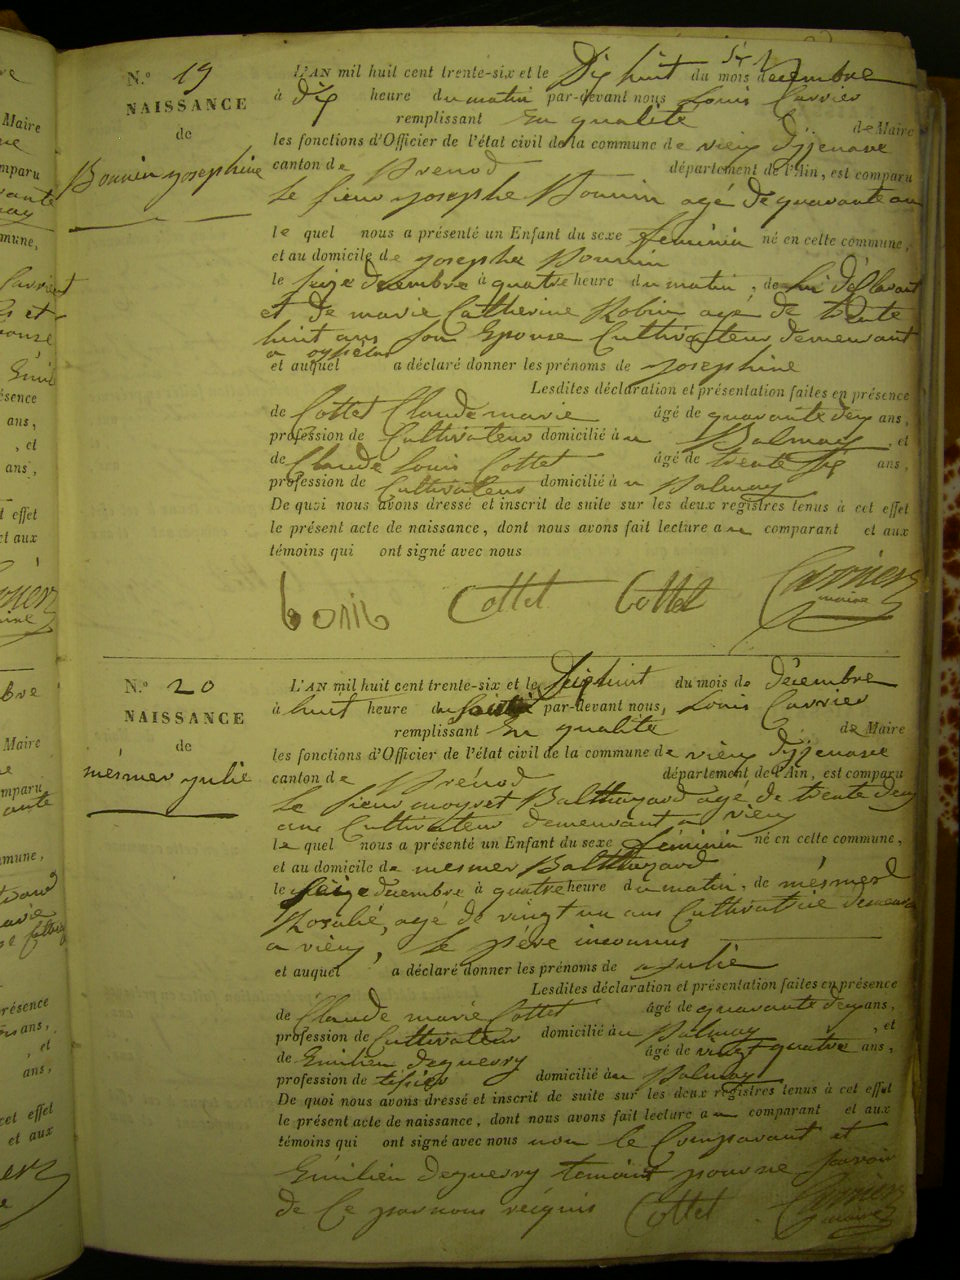 N.º 19
NAISSANCE
de
Bonnin josephine
L'AN mil huit cent trente-six et le Dix huit du mois decembre
à dix heure du matin par-devant nous Louis Carrier
remplissant En qualité de Maire
les fonctions d'Officier de l'état civil de la commune de vieu Dizenave
canton de Brenod département de l'Ain, est comparu
Le sieur josephe Bonnin agé de quarante an
le quel nous a présenté un Enfant du sexe féminin né en cette commune,
et au domicile de josephe Bonnin
le seize decembre à quatre heure du matin, de lui déclarant
et de marie Catherine Robin agé de trente
huit ans son Epouse Cultivateur demeurant
a
et auquel a déclaré donner les prénoms de josephine
Lesdites déclaration et présentation faites en présence
de Cottet Claude marie âgé de quarante deux ans,
profession de Cultivateur domicilié à Balmay, et
de Claude Louis Cottet âgé de trente six ans,
profession de Cultivateur domicilié à Balmay
De quoi nous avons dressé et inscrit de suite sur les deux registres tenus à cet effet
le présent acte de naissance, dont nous avons fait lecture au comparant et aux
témoins qui ont signé avec nous
bonin Cottet Cottet Carrier
maire
N.º 20
NAISSANCE
de
mesmer julie
L'AN mil huit cent trente-six et le Dix huit du mois de décembre
à huit heure du par-devant nous, Louis Carrier
remplissant En qualité de Maire
les fonctions d'Officier de l'état civil de la commune de vieu Dizenave
canton de Brénod département de l'Ain, est comparu
Le sieur moyret Balthazard agé de trente deux
ans Cultivateur demeurant a vieu
le quel nous a présenté un Enfant du sexe féminin né en cette commune,
et au domicile de mesmer Balthazard
le seize decembre à quatre heure du matin, de mésmer
Rosalie, agé de vingt un ans Cultivatrice demeurant
a vieu, le père inconnus
et auquel a déclaré donner les prénoms de julie
Lesdites déclaration et présentation faites en présence
de Claude marie Cottet âgé de quarante deux ans,
profession de Cultivateur domicilié à Balmay, et
de Emilien deguerry âgé de vingt quatre ans,
profession de domicilié au Balmay
De quoi nous avons dressé et inscrit de suite sur les deux registres tenus à cet effet
le présent acte de naissance, dont nous avons fait lecture au comparant et aux
témoins qui ont signé avec nous non le Comparant et
Emilien deguerry temoint pour ne savoir
de Ce par nous réquis Cottet Carrier
maire